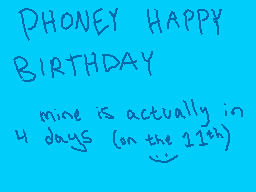 PHONEY HAPPY
BIRTHDAY
mine is actually in
4 days (on the 11th)